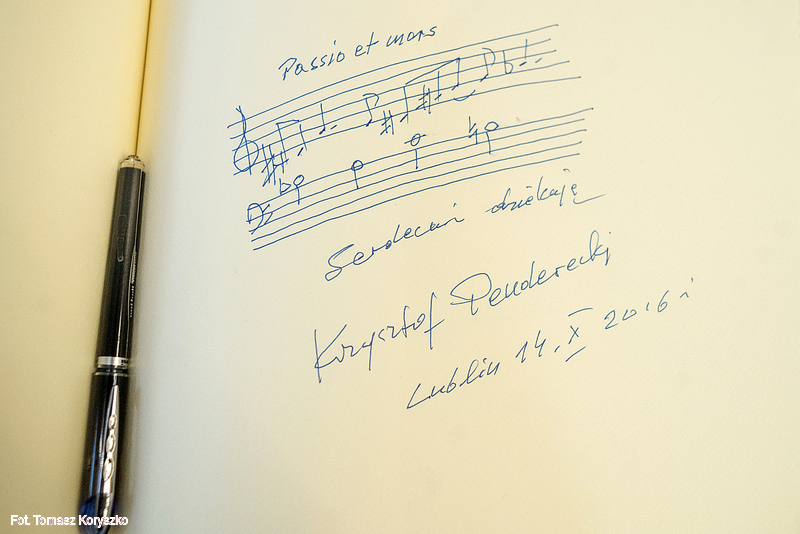 Passio et mors
Serdecznie dziękuję
Krzysztof Penderecki
Lublin 14. X 2016 r
Fot. Tomasz Koryszko